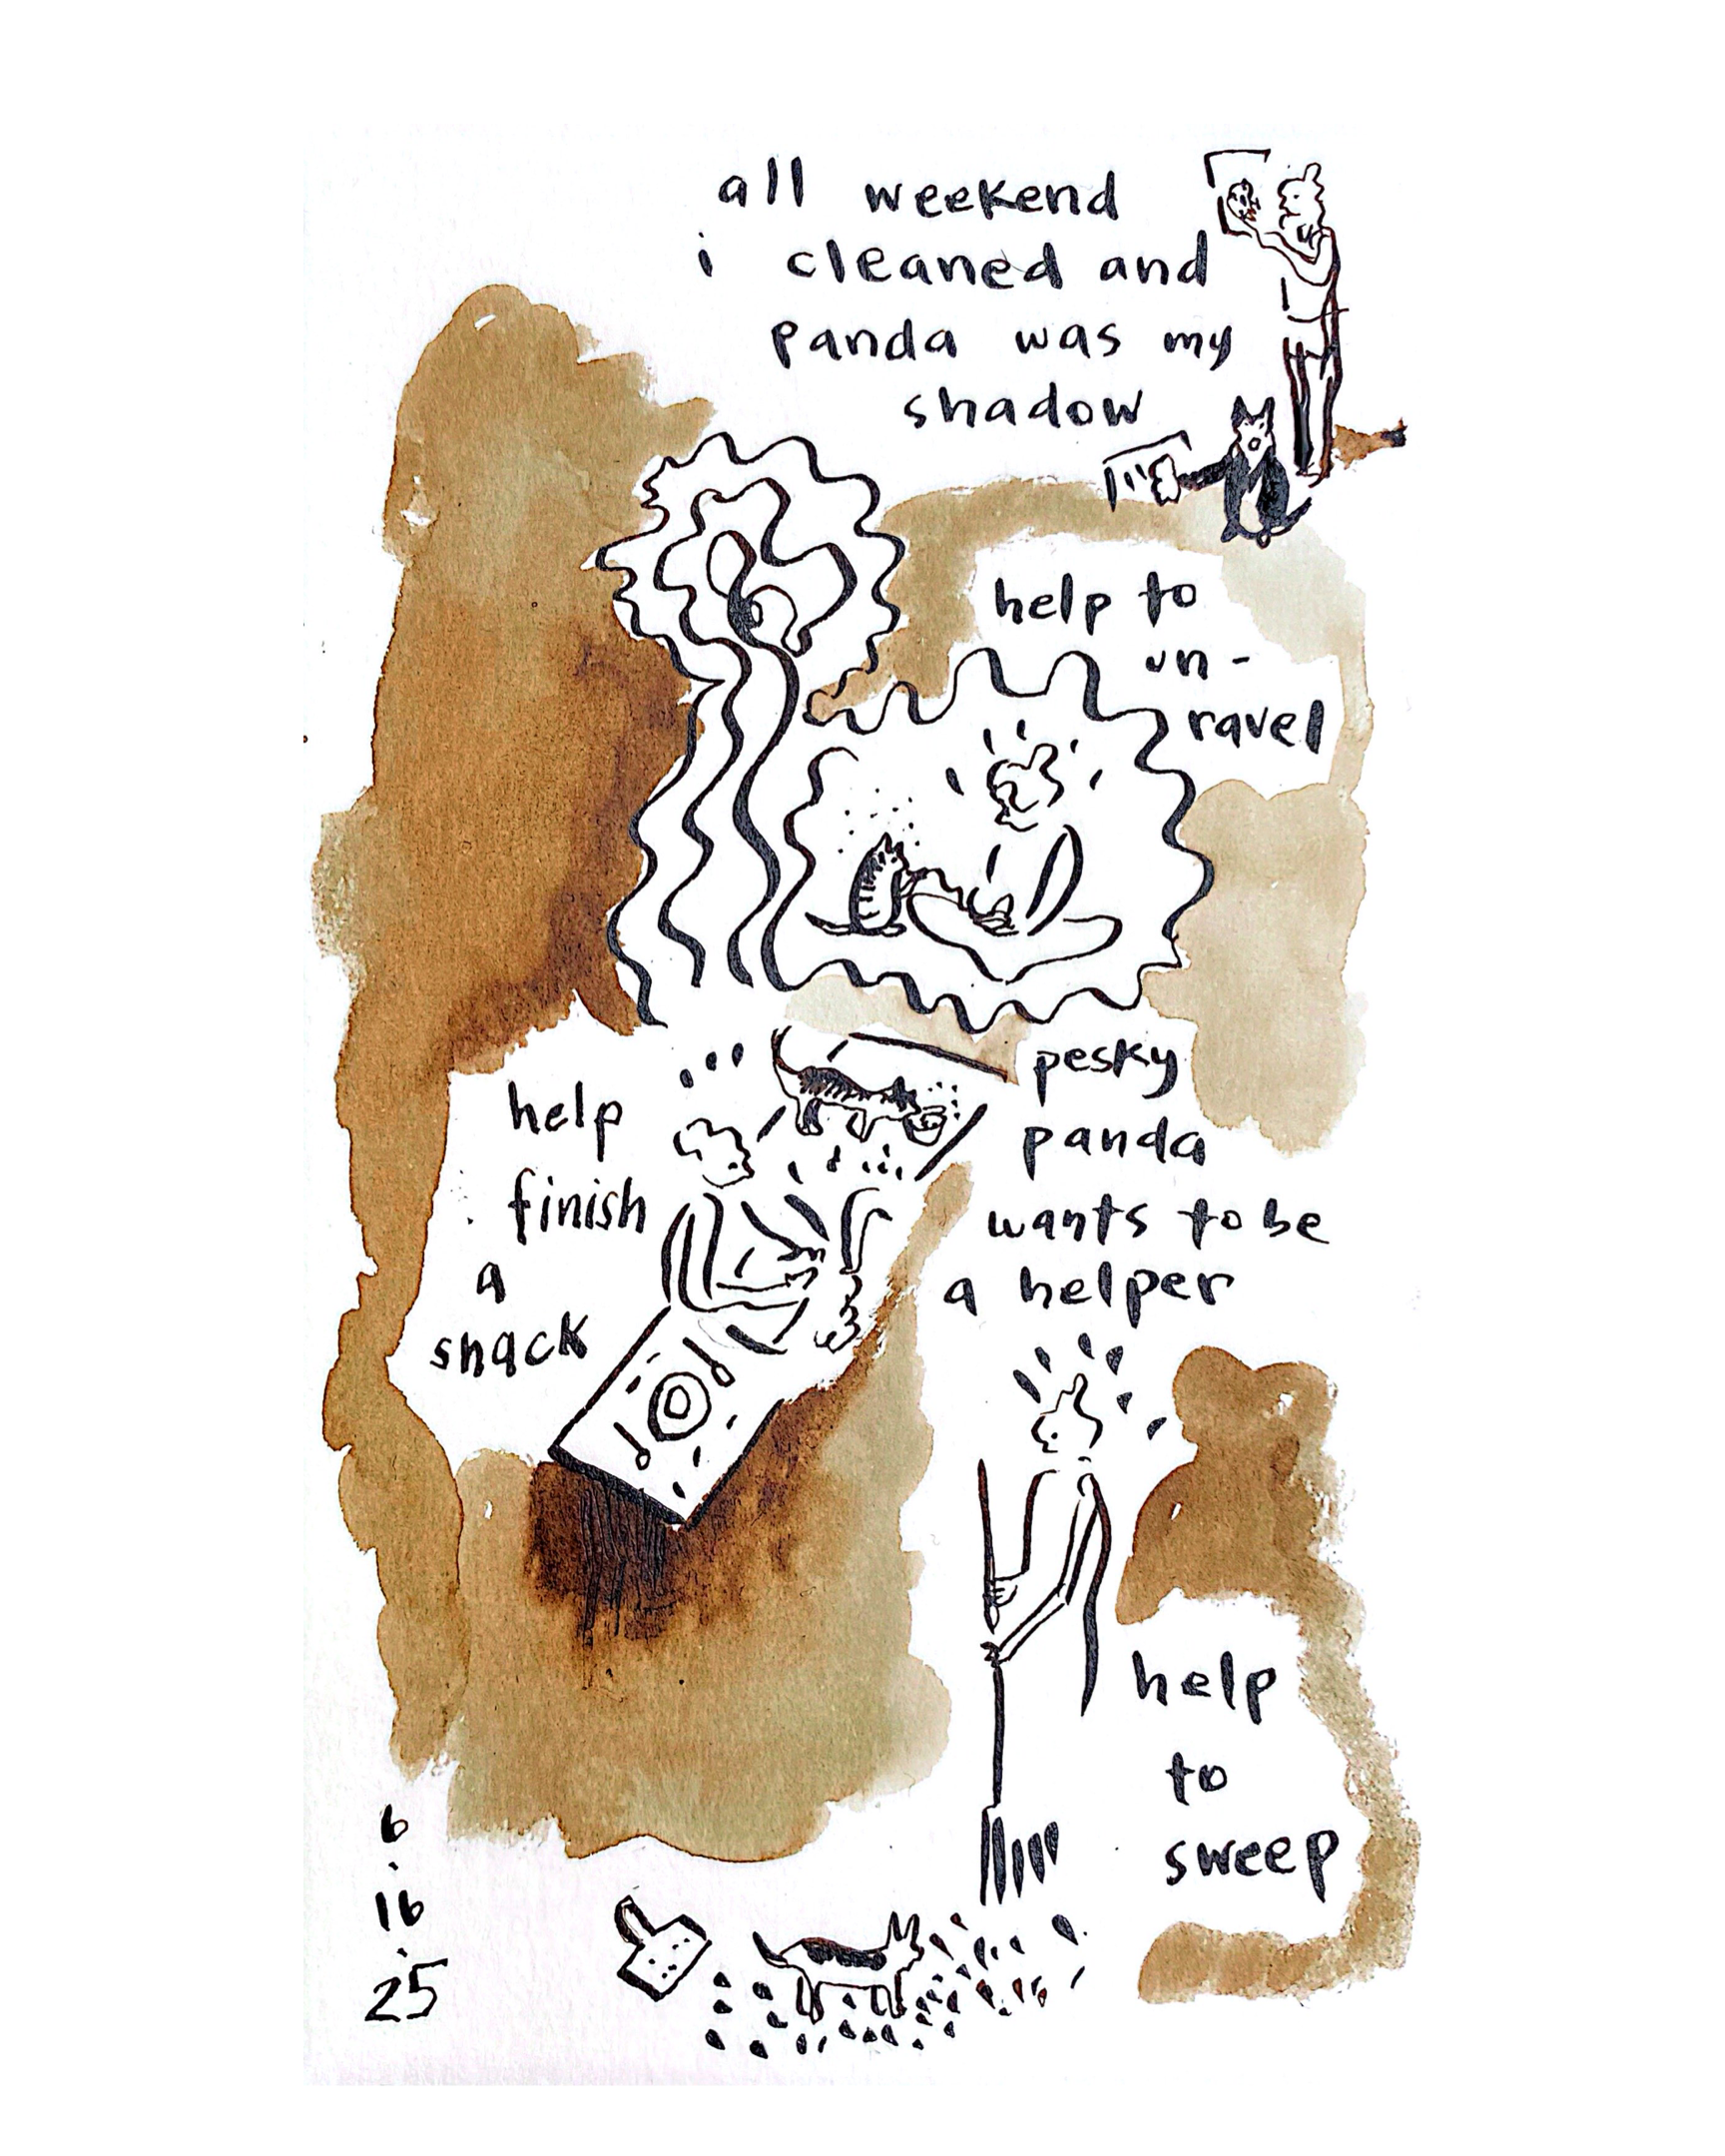 all weekend
i cleaned and
panda was my
shadow
help to
un-
ravel
pesky
panda
wants to be
a helper
help
finish
a
snack
help
to
sweep
6
.
16
.
25